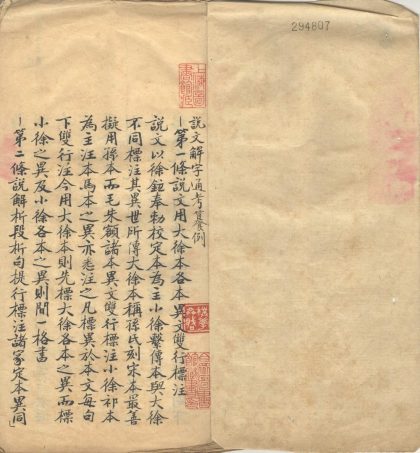 294807
説文解字通考纂例
一第一條說文用大徐本各本異文雙行標注
說文以徐鉉奉勅校定本為主小徐繫傳本與大徐
不同標注其異世所傳大徐本稱孫氏刻宋本最善
擬用孫本而毛朱額諸本異文雙行標注小徐祁本
為主汪本馬本之異亦悉注之凡標異於本文每句
下雙行注今用大徐本則先標大徐各本之異而標
小徐之異及小徐各本之異則間一格書
一第二條說解析段析句提行標注諸家定本異同